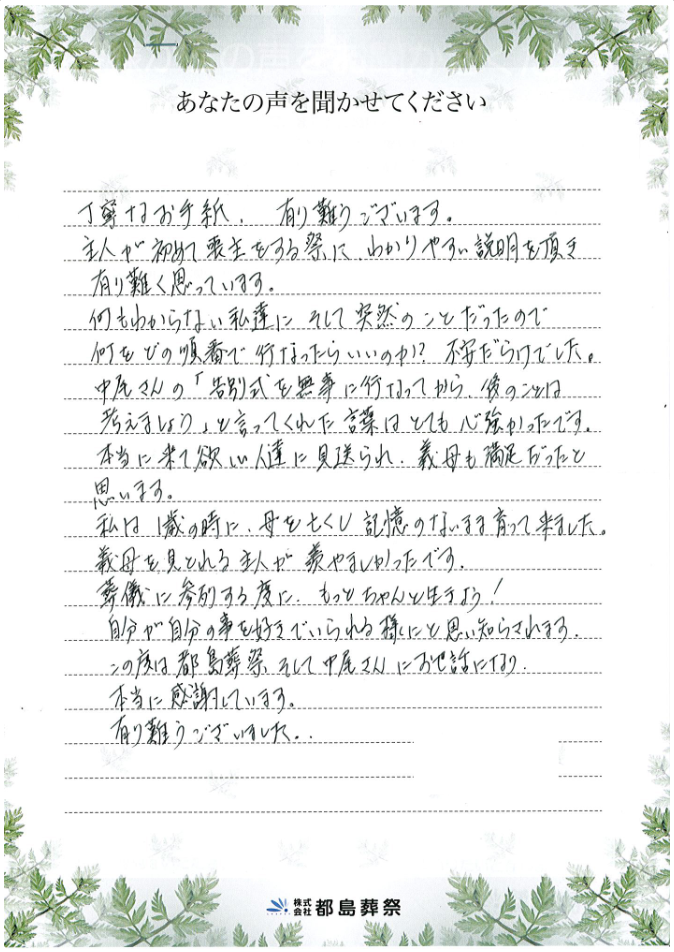 あなたの声を聞かせてください
丁寧なお手紙、有り難うございます。
主人が初めて喪主をする祭に、わかりやすい説明を頂き
有り難く思っています。
何もわからない私達に そして突然のことだったので
何をどの順番で行なったらいいのか!? 不安だらけでした。
中尾さんの「告別式を無事に行なってから、後のことは
考えましょう」と言ってくれた言葉はとても心強かったです。
本当に来て欲しい人達に見送られ、義母も満足だったと
思います。
私は1歳の時に、母を亡くし記憶のないまま育って来ました。
義母を見とれる主人が羨やましかったです。
葬儀に参列する度に、もっとちゃんと生きよう!
自分が自分の事を好きでいられる様にと思い知らされます。
この度は都島葬祭 そして中尾さんにお世話になり、
本当に感謝しています。
有り難うございました。
株式会社 都島葬祭